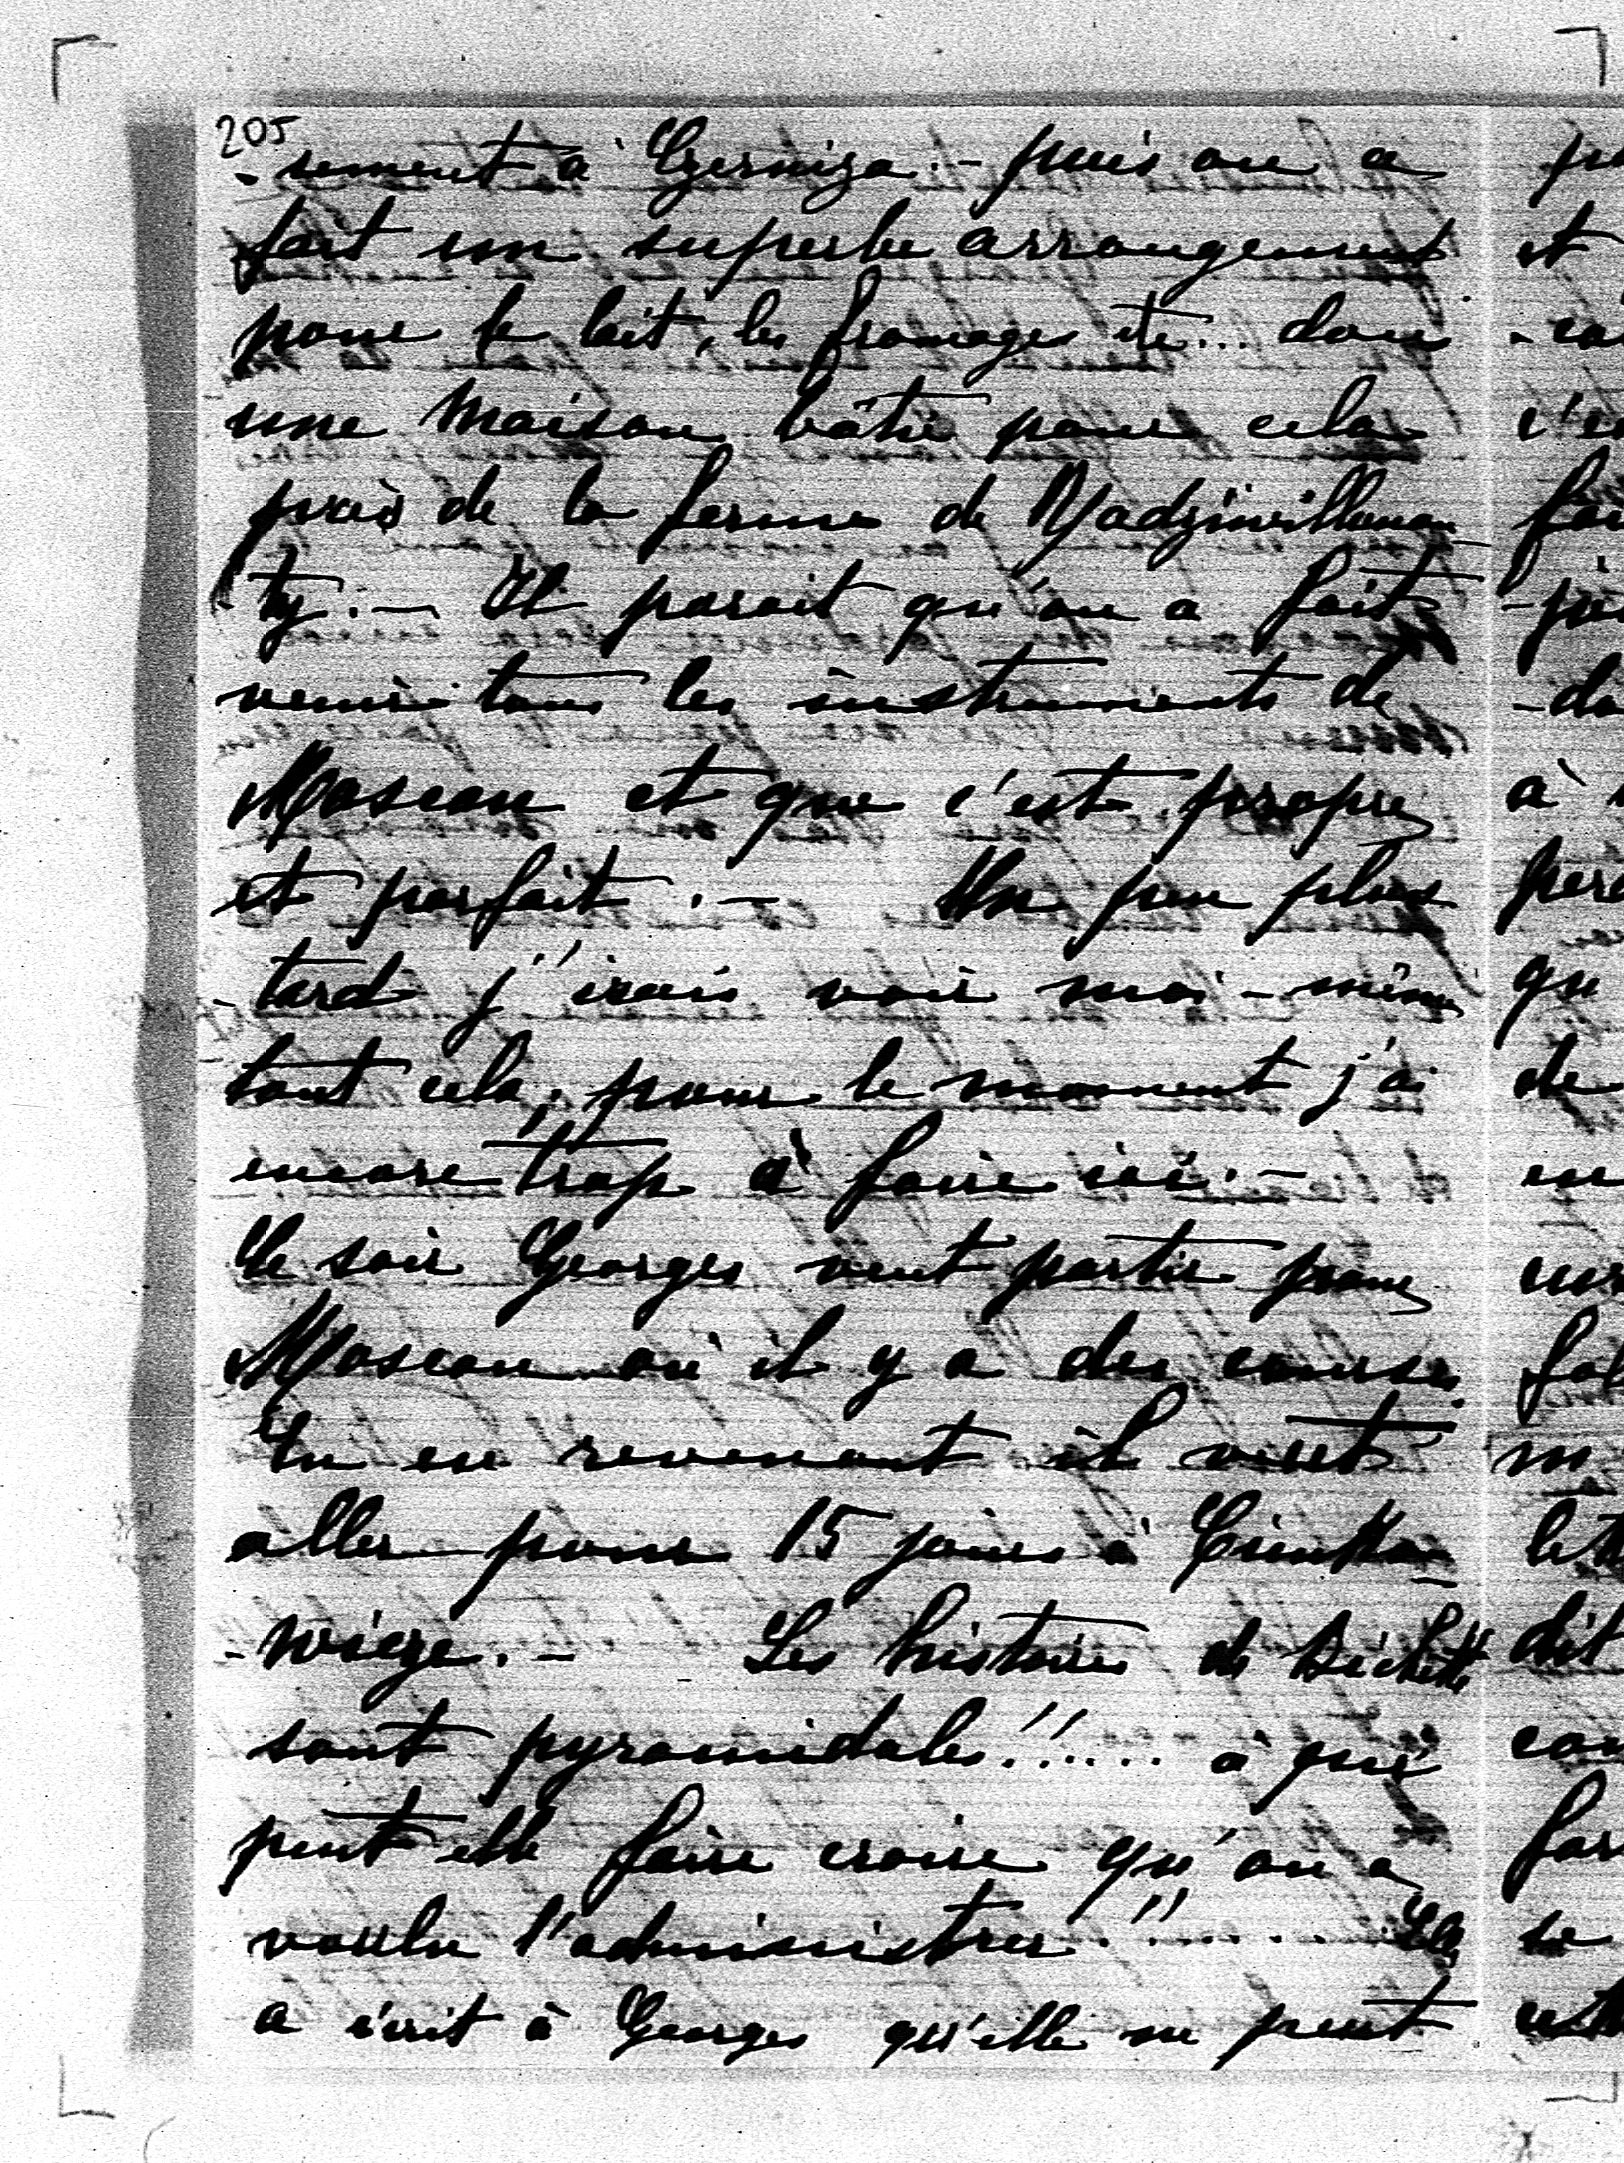 205
-sement à Czerniza.- puis on a
fait un superbe arrangement
pour le lait, les fromages etc... dans
une maison bâtie pour cela
près de la ferme de
ty.- Il parait qu'on a fait
venir tous les instruments de
Moscou et que c'est propre
et parfait.- Un peu plus
tard j'irais voir moi-même
tout cela, pour le moment j'ai
encore trop à faire ici.-
Ce soir Georges veut partir pour
Moscou où il y a des courses.
En en revenant il veut
aller pour 15 jours à
-wicze.- Les histoires de Bichette
sont pyramidales!!.... à qui
peut elle faire croire qu'on a
voulu l'administrer!!...... Elle
a écrit à Georges qu'elle ne peut